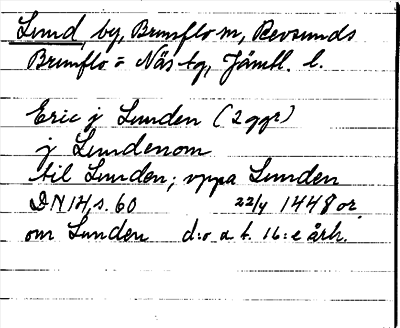 Lund, by, Brunflo sn, Revsunds
Brunflo o Näs tg, Jämtl. l.
Eric j Lunden (2 ggr)
j Lundenom
til Lunden; vppa Lunden
DN 14, s. 60 22/4 1448 or.
om Lunden d:o a b. 16:e årh.